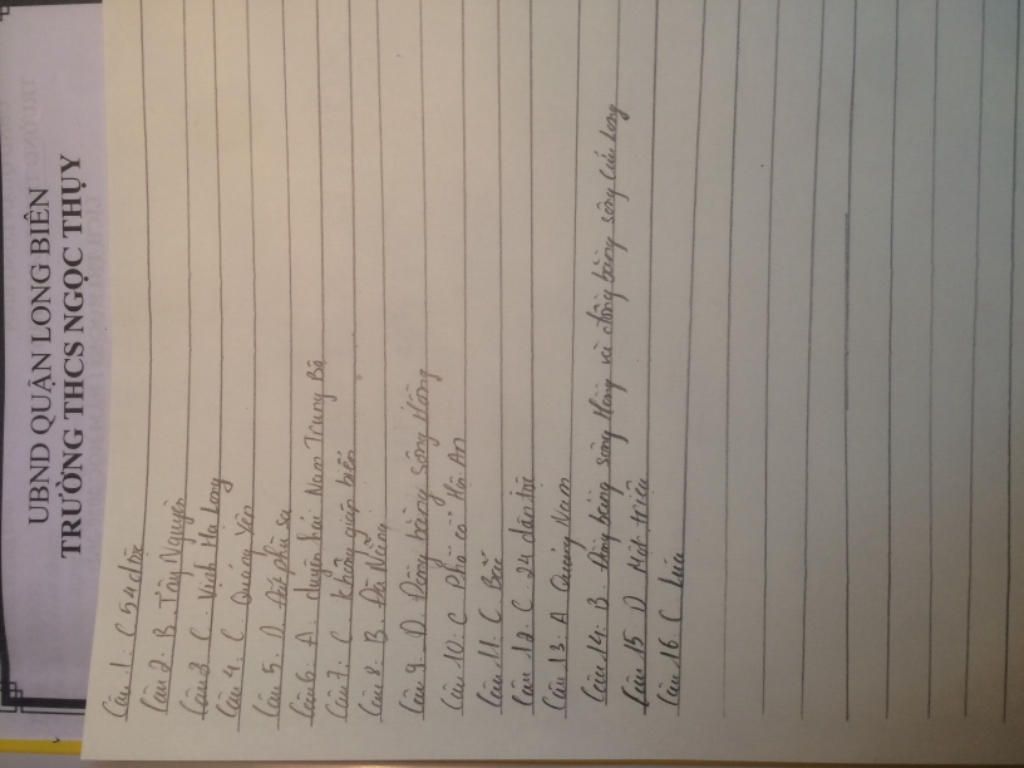 UBND QUẬN LONG BIÊN
TRƯỜNG THCS NGỌC THỤY
Câu 1: C 54 dân
Câu 2: B. Tây Nguyên
Câu 3: C. Vịnh Hạ Long
Câu 4: C. Quảng Yên
Câu 5: D. Đất phù sa
Câu 6: A. duyên hải Nam Trung Bộ
Câu 7: C. không giáp biển
Câu 8: B. Đà Nẵng
Câu 9: D. Đồng bằng sông Hồng
Câu 10: C Phố cổ Hội An
Câu 11: C. Bắc
Câu 12: C. 24 dân tộc
Câu 13: A Quảng Nam
Câu 14: B. Đồng bằng sông Hồng và đồng bằng sông Cửu Long
Câu 15 D Một triều
Câu 16 C Lúa